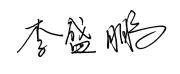 李盛鹏